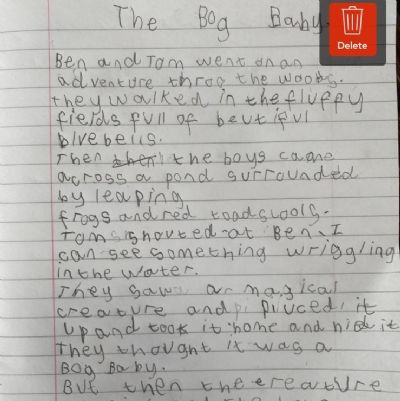 The Bog Baby.
Delete
Ben and Tom went on an
adventure throo the woobs.
they walked in the fluffy
fields full of beutiful
bluebells.
Then then the boys came
across a pond surrounded
by leaping
frogs and red toadsools.
Tom shouted at Ben. I
can see something wriggling
in the water.
They saw a magical
creature and pluced it
up and took it home and hid it
They thought it was a
Bog Baby.
But then the creature